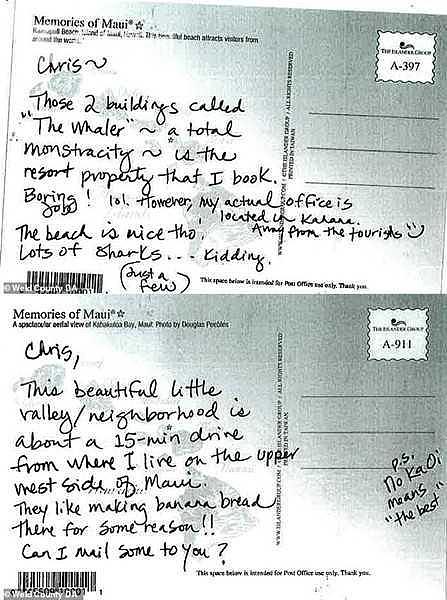 Memories of Maui®☆
Kaanapali Beach, Island of Maui, Hawaii. This beautiful beach attracts visitors from
around the world.
THE ISLANDER GROUP
A-397
Chris~
Those 2 buildings called
"The Whaler" ~ a total
monstracity ~ is the
resort property that I book.
Boring job! lol. However, my actual office is
located in Kahana.
Away from the tourists
The beach is nice tho!
Lots of sharks... kidding.
(Just a few)
©THE ISLANDER GROUP / ALL RIGHTS RESERVED
PRINTED IN TAIWAN
This space below is intended for Post Office use only. Thank you.
© Weld County DA
Memories of Maui®☆
A spectacular aerial view of Kahakuloa Bay, Maui. Photo by Douglas Peebles
THE ISLANDER GROUP
A-911
Chris,
This beautiful little
valley/neighborhood is
about a 15-min drive
from where I live on the upper
west side of Maui.
They like making banana bread
there for some reason!!
Can I mail some to you?
p.s.
No Ka Oi
means
"the best"
©THE ISLANDER GROUP / ALL RIGHTS RESERVED
PRINTED IN TAIWAN
This space below is intended for Post Office use only. Thank you.
© Weld County DA